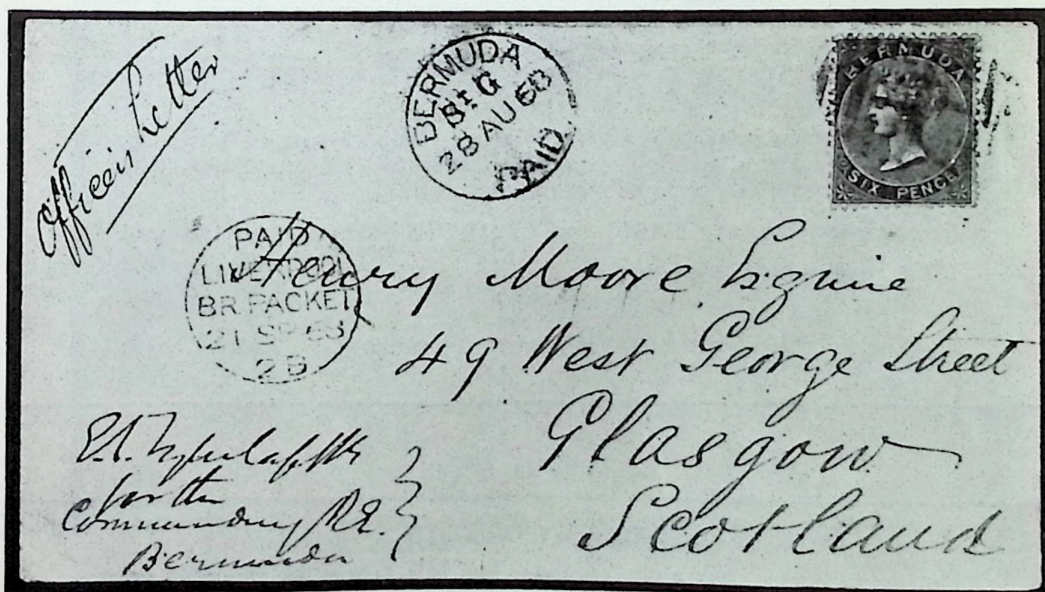 Officer's Letter
BERMUDA
St G
28 AU 68
PAID
BERMUDA
SIX PENCE
PAID
LIVERPOOL
BR. PACKET
21 SP 68
2B
Henry Moore Esquire
49 West George Street
Glasgow
Scotland
for the
Commanding R.E.
Bermuda